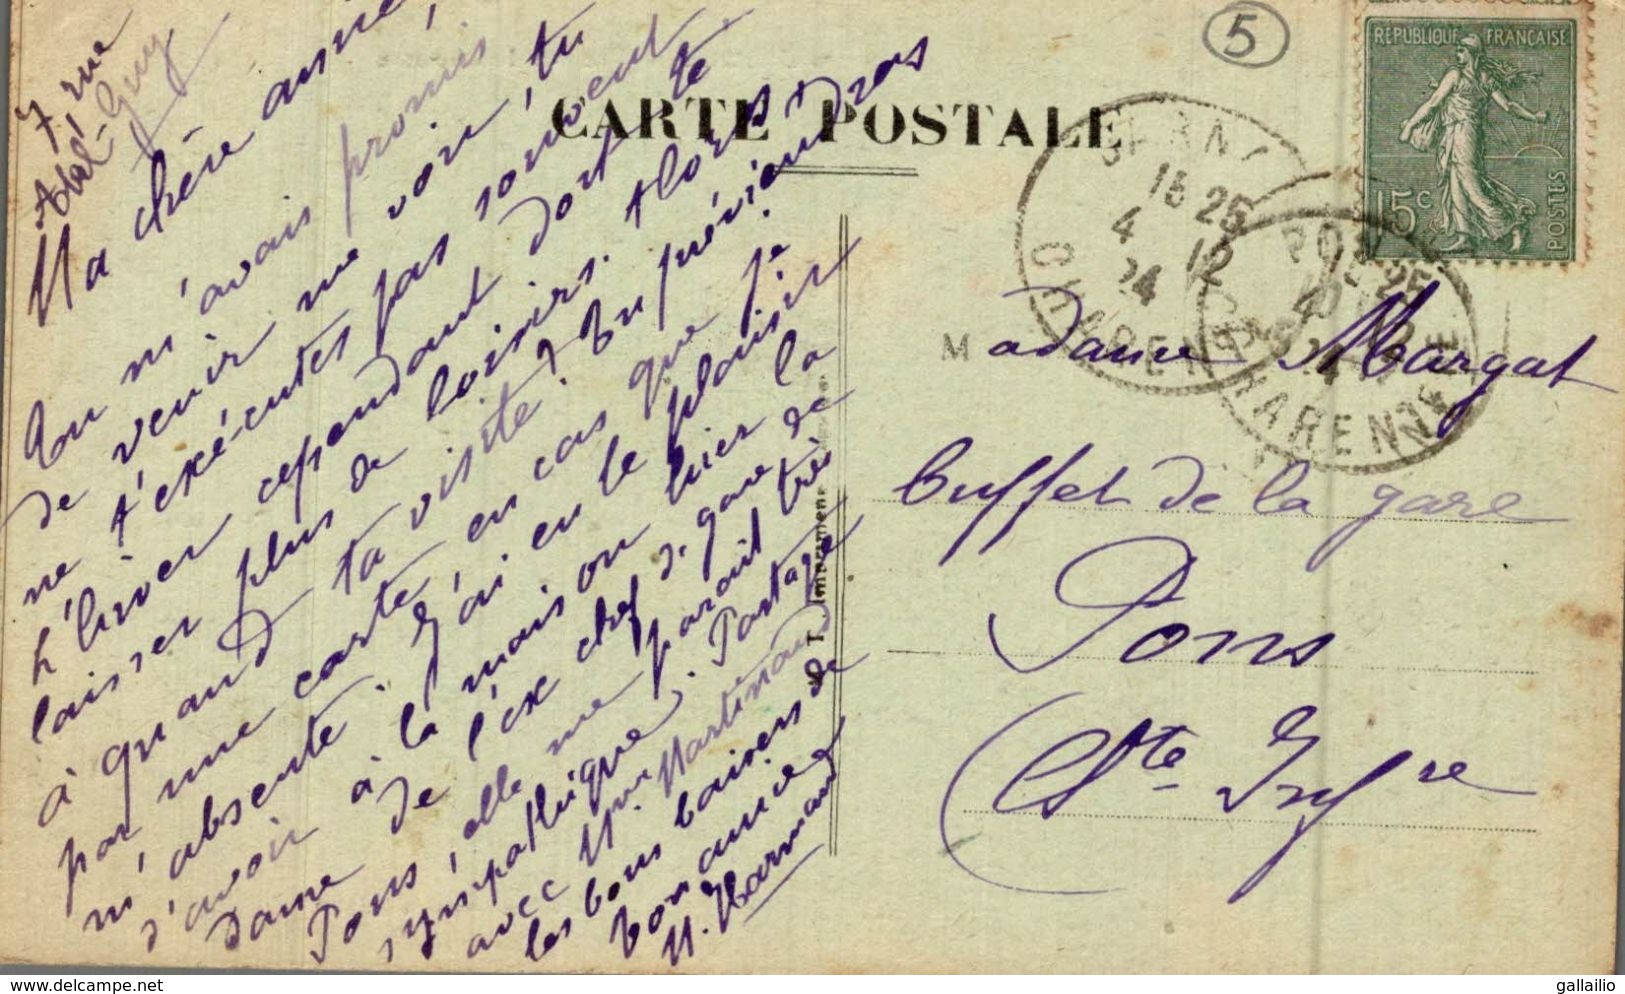 7 rue
Abel-Guy
Ma chère amie,
Tu m'avais promis
de venir me voir, tu
ne t'exécutes pas souvent
L'hiver cependant doit te
laisser plus de loisirs. Alors +
à quand ta visite ? Tu préviendras
par une carte en cas que je
m'absente. J'ai eu le plaisir
d'avoir à la maison hier la
Dame de l'ex chef d. gare de
Pons, elle me parait très
sympathique. Partage
avec Mme Martineau
les bons baisers de
ton amie
M. Harmand
CARTE POSTALE
5
RÉPUBLIQUE FRANÇAISE
15c
POSTES
15 25
4 12
24
CHARENTE
CHARENTE
Madame Margat
Buffet de la gare
Pons
(Chte Infre
Imprimerie
gallailio